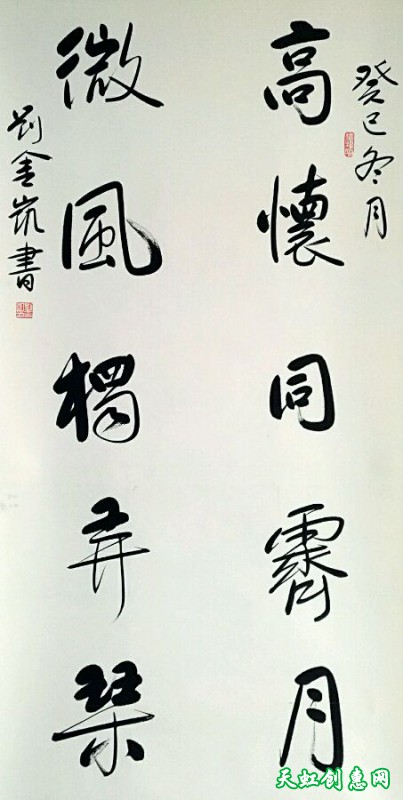 癸巳冬月
高懷同霽月
微風獨弄琴
刘金書
天虹创惠网